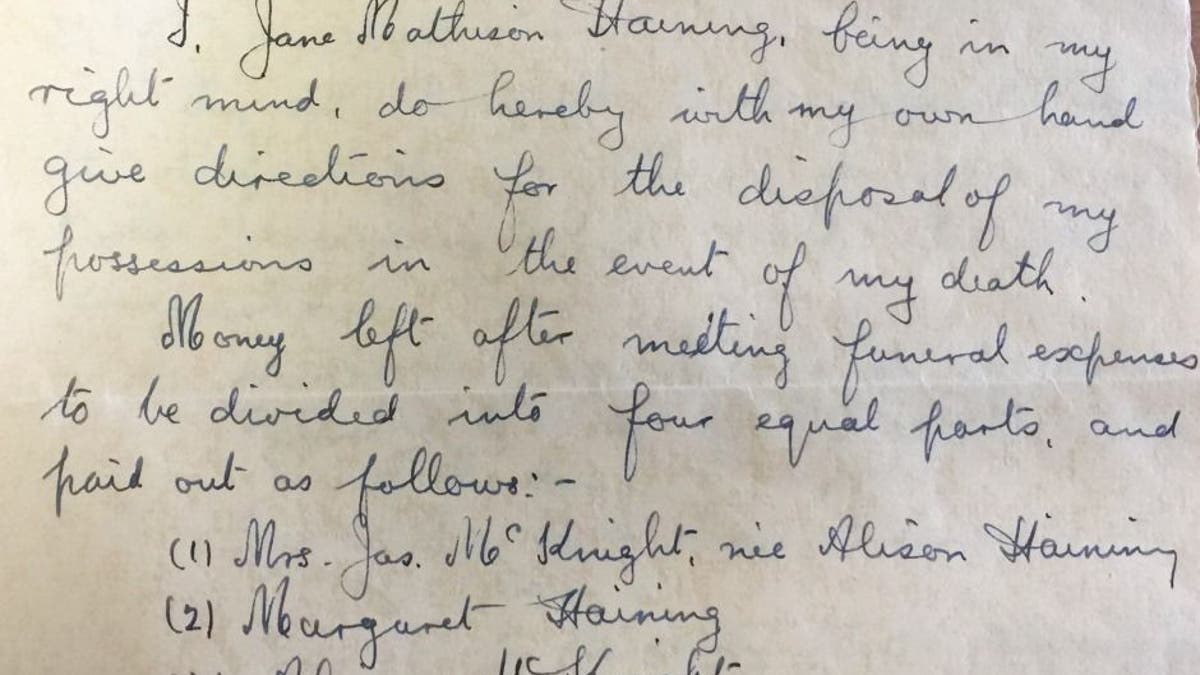 I, Jane Mathison Haining, being in my
right mind, do hereby with my own hand
give directions for the disposal of my
possessions in the event of my death.
Money left after meeting funeral expenses
to be divided into four equal parts, and
paid out as follows:-
(1) Mrs. Jas. McKnight, née Alison Haining
(2) Margaret Haining